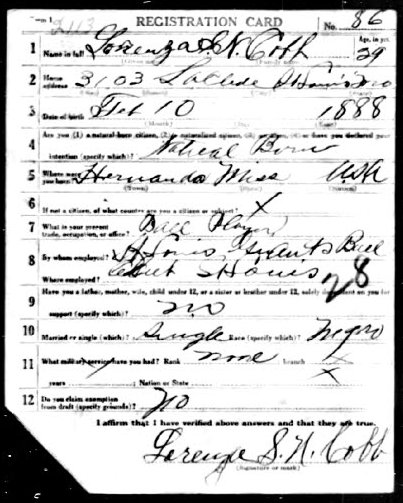 REGISTRATION CARD
No. 86
1 Name in full Lorenza S. N. Cobb Age, in yrs. 29
(Given name) (Family name)
2 Home address 3103 Laclede St Louis Mo
(No.) (Street) (City) (State)
3 Date of birth Feb 10 1888
(Month) (Day) (Year)
Are you (1) a natural-born citizen, (2) a naturalized citizen, (3) an alien, (4) or have you declared your
4 intention (specify which)? Natural Born
5 Where were you born? Hernando Miss USA
(Town) (State) (Nation)
6 If not a citizen, of what country are you a citizen or subject? X
7 What is your present trade, occupation, or office? Ball Player
8 By whom employed? St Louis Giants Ball
Where employed? Club St Louis 28
9 Have you a father, mother, wife, child under 12, or a sister or brother under 12, solely dependent on you for
support (specify which)? no
10 Married or single (which)? Single Race (specify which)? Negro
11 What military service have you had? Rank none branch X
years ; Nation or State X
12 Do you claim exemption from draft (specify grounds)? No
I affirm that I have verified above answers and that they are true.
Lorenza S. N. Cobb
(Signature or mark)